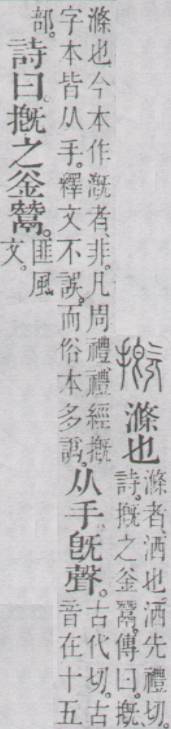 摡
滌也
滌者、洒也洒先禮切。
詩。摡之釜鬵。傳曰。摡、
滌也今本作漑者、非。凡周禮禮經摡
字本皆从手。釋文不誤。而俗本多譌。
从手。旣聲。
古代切。古
音在十五
部。
詩曰。摡之釜鬵。
匪風
文。